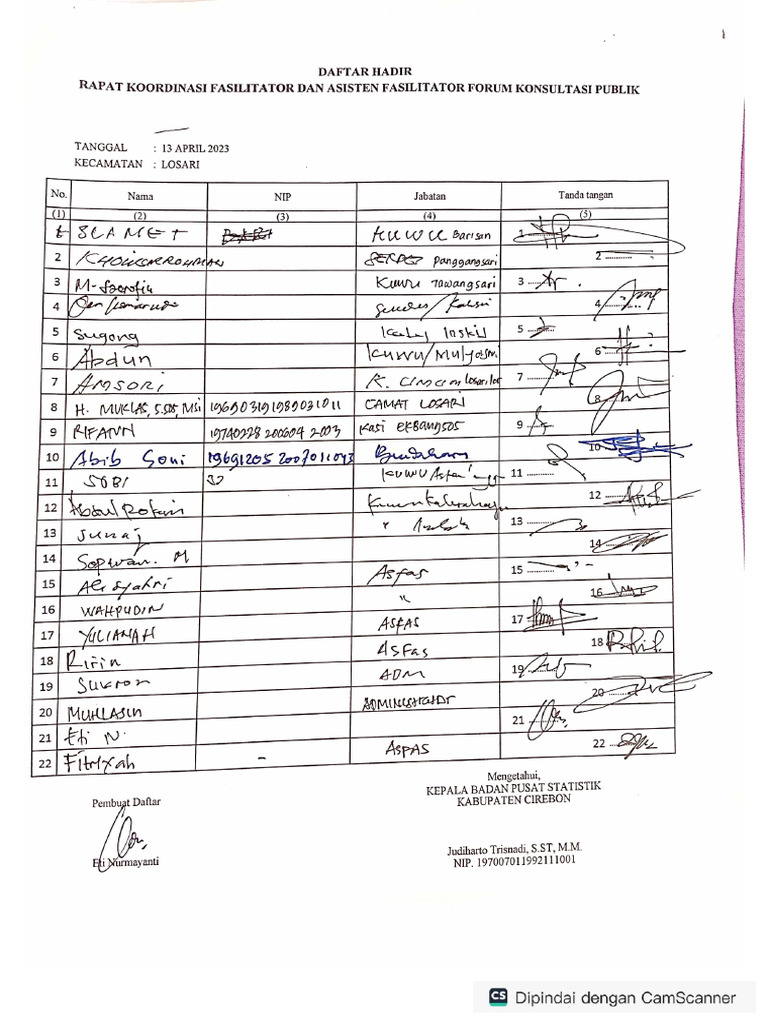 DAFTAR HADIR
RAPAT KOORDINASI FASILITATOR DAN ASISTEN FASILITATOR FORUM KONSULTASI PUBLIK
TANGGAL : 13 APRIL 2023
KECAMATAN : LOSARI
No. Nama NIP Jabatan Tanda tangan
(1) (2) (3) (4) (5)
1 SLAMET KUWU Barisan 1
2 KHOLISURROHMAN panggangsari 2
3 Kuwu Tawangsari 3
4 4
5 Sugong 5
6 Abdun KUWU/Mulyasari 6
7 AMSORI 7
8 H. MUKLAS, S.SOS, MSi 196903191989031011 CAMAT LOSARI 8
9 RIFANN 19740228 200604 2003 Kasi EKBANGSOS 9
10 Abib Soni 19691205 2007011043 10
11 SOBI KUWU 11
12 Abdul Rofain 12
13 Junaj 13
14 Sopwan. M 14
15 Ali Syahri Asfas 15
16 WAHPUDIN " 16
17 YULIANAH ASFAS 17
18 Ririn ASFas 18
19 Sukron ADM 19
20 MUHLASIN ADMINISTRATOR 20
21 Eti N. 21
22 Fitriyah - ASPAS 22
Mengetahui,
KEPALA BADAN PUSAT STATISTIK
KABUPATEN CIREBON
Pembuat Daftar
Eti Nurmayanti
Judiharto Trisnadi, S.ST, M.M.
NIP. 197007011992111001
CS Dipindai dengan CamScanner